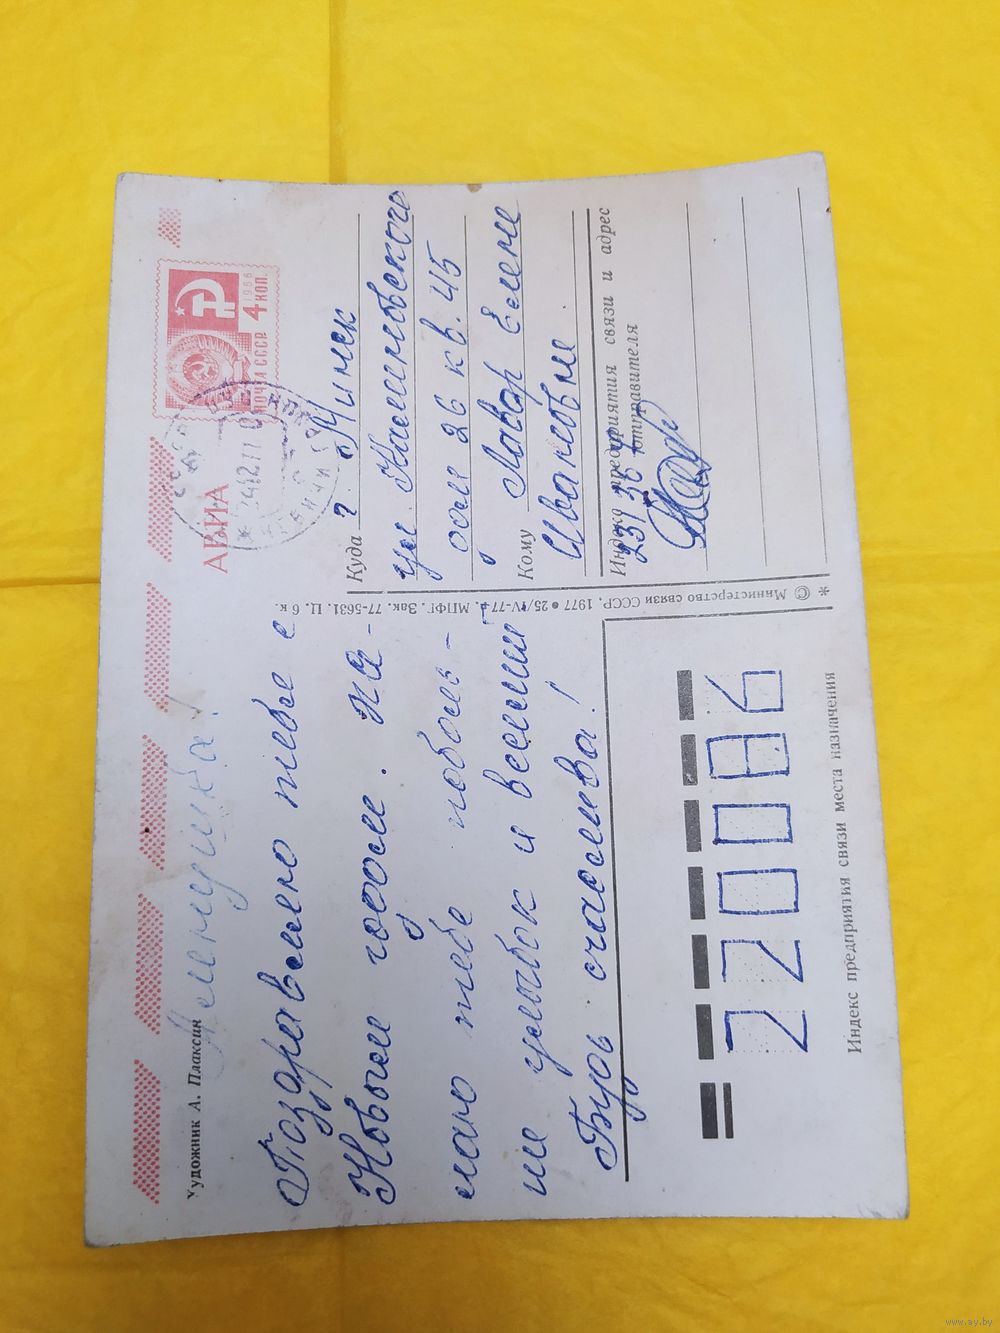 Художник А. Плаксин
Леночка!
Поздравляю тебя с
Новым годом. Же-
лаю тебе поболь-
ше улыбок и веселия
Будь счастлива!
АВИА
ПОЧТА СССР 4 КОП.
1966
Куда г Минск
ул Калиновского
дом 26 кв. 45
Кому Лавар Елене
Ивановне
Индекс предприятия связи и адрес
отправителя
© Министерство связи СССР, 1977 ● 25/IV-77 г. МПФГ. Зак. 77-5631. Ц. 6 к.
220086
Индекс предприятия связи места назначения
www.ay.by